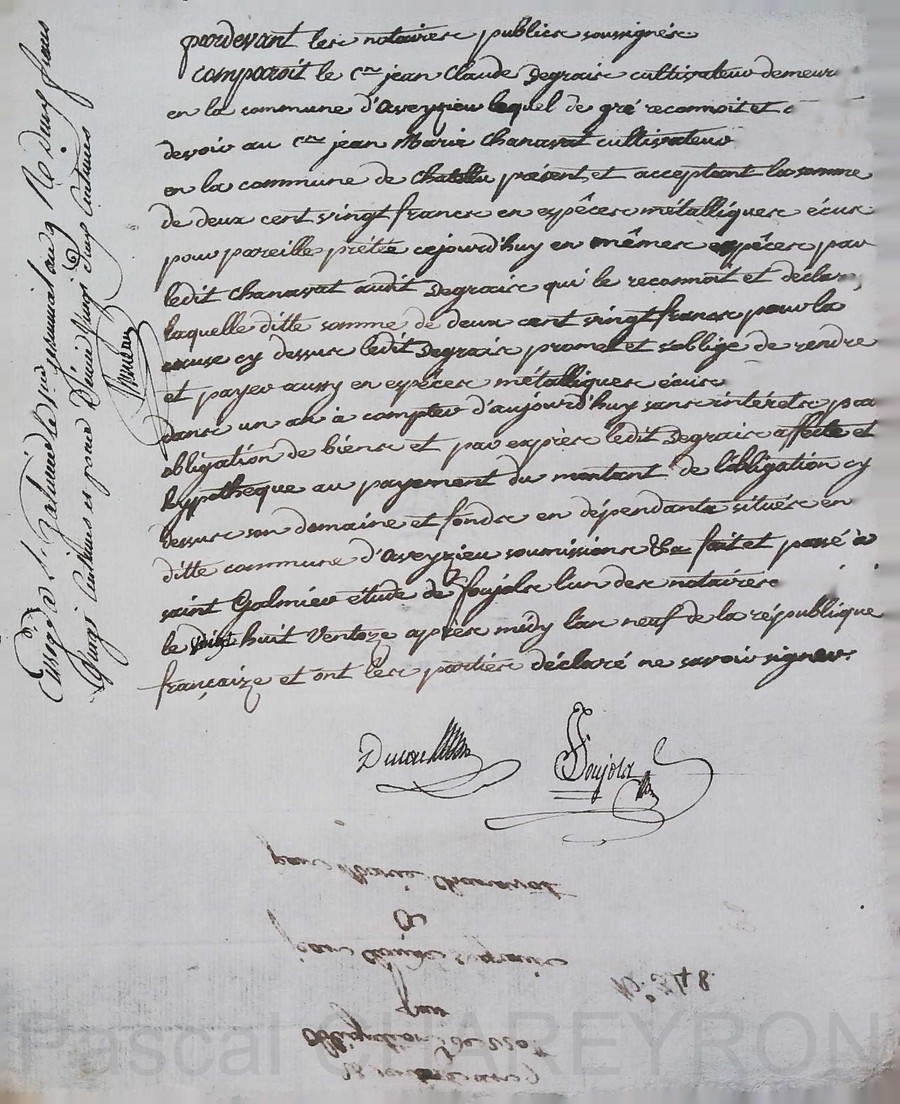 pardevant les notaires publics soussignés
comparoit le cen jean Claude Degraix cultivateur demeur
en la commune d'aveyzieu lequel de gré reconnoit et
devoir au cen jean Marie Chanavat cultivateur
en la commune de Chatellu présent et acceptant la somme
de deux cent vingt francs en espêces métalliques écus
pour pareille prétée cejourd'huy en mêmes espêces par
ledit Chanavat audit Degraix qui le reconnoit et déclare
laquelle ditte somme de deux cent vingt francs pour la
cause cy dessus ledit Degraix promet et s'oblige de rendre
et payer aussy en espêces métalliques écus
dans un an à compter d'aujourd'huy sans intérets par
obligation de biens et par exprès ledit Degraix affecte et
hypotheque au payement du montant de l'obligation cy
dessus son domaine et fonds en dépendants situés en
ditte commune d'aveyzieu soumissions &a fait et passé à
saint Galmier étude de foujols l'un des notaires
le huit Ventoze après midy l'an neuf de la république
françaize et ont les parties déclaré ne savoir signer.
Foujols
Enregé à St. Galmier le
Vingt centimes et pour Dixme Vingt deux centimes
N.° 348.
18 ventose an 9
obligation de 220lt
par
jean Claude Degraix
a
jean Marie Chanavat
Pascal CHAREYRON